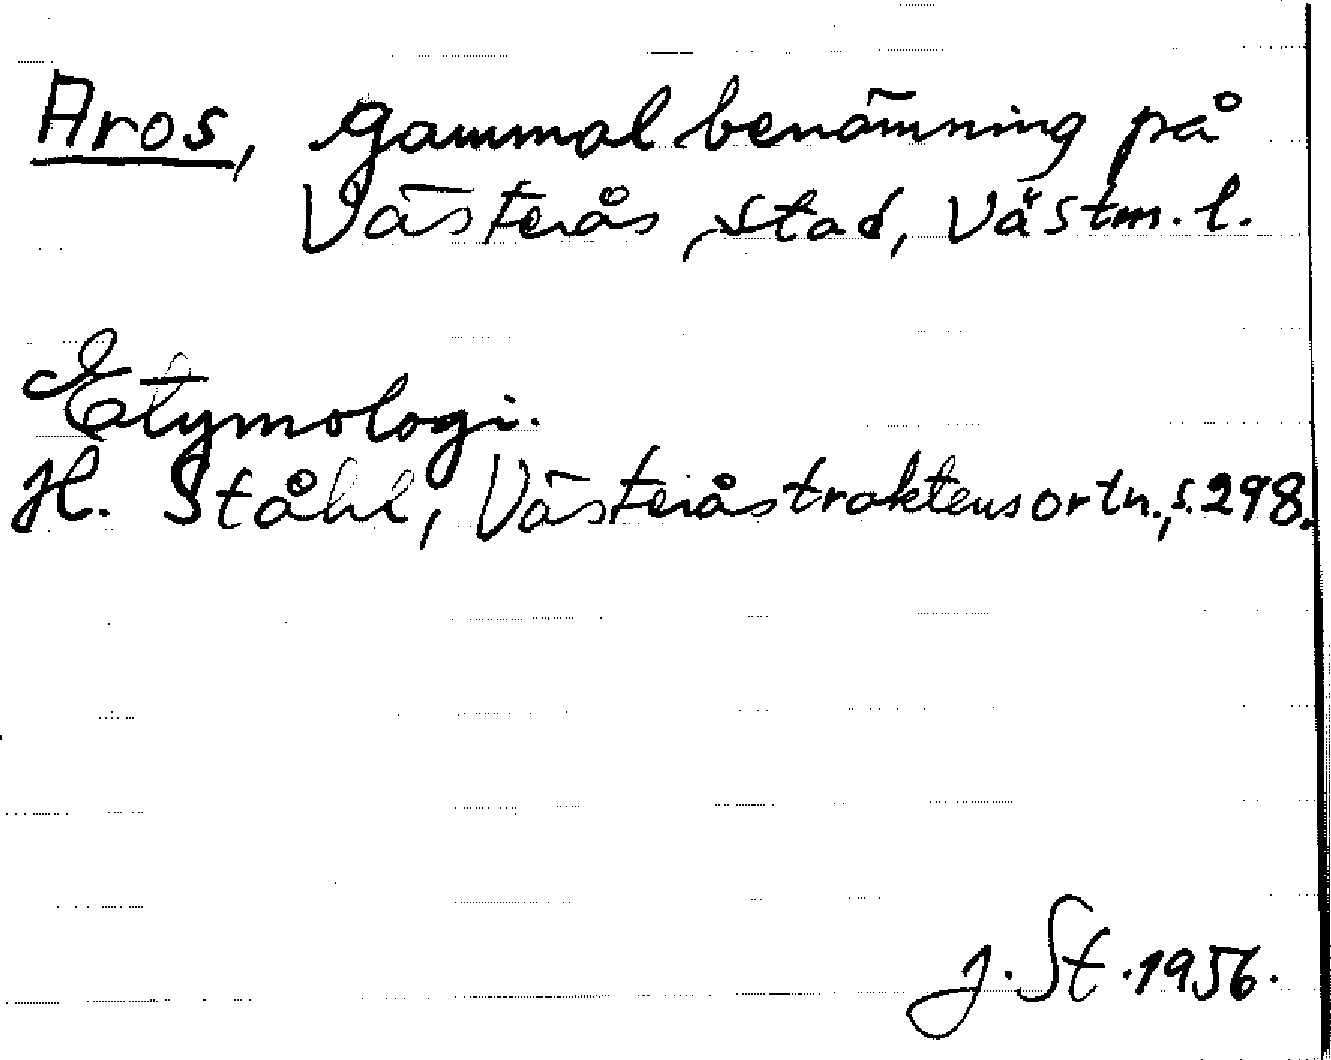 Aros, gammal benämning på
Västerås, stad, Västm. l.
Etymologi.
H. Ståhl, Västeråstraktens ortn., s. 298.
J. St. 1956.